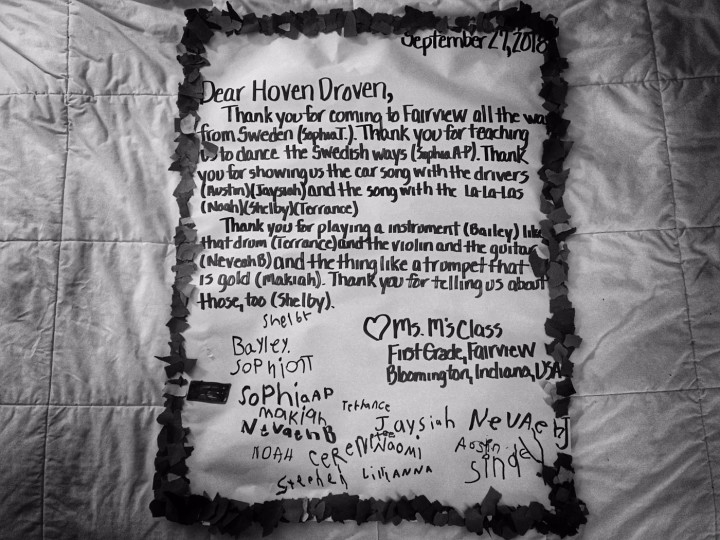 September 27, 2018
Dear Hoven Droven,
Thank you for coming to Fairview all the way
from Sweden (Sophia J.). Thank you for teaching
us to dance the Swedish ways (Sophia A-P). Thank
you for showing us the car song with the drivers
(Austin)(Jaysiah) and the song with the la-la-las
(Noah)(Shelby)(Terrance)
Thank you for playing a instroment (Bailey) like
that drum (Terrance) and the violin and the guitar
(Neveah B) and the thing like a trumpet that
is gold (Makiah). Thank you for telling us about
those, too (Shelby).
Shelby
♡ Ms. M's Class
Bayley.
First Grade, Fairview
Bloomington, Indiana, USA
SoPhiaAP
makiah
Terrance
Jaysiah
NeVAeh J
NevaehB
NOAH
Naomi
Austin
Stephen
LilliANNA